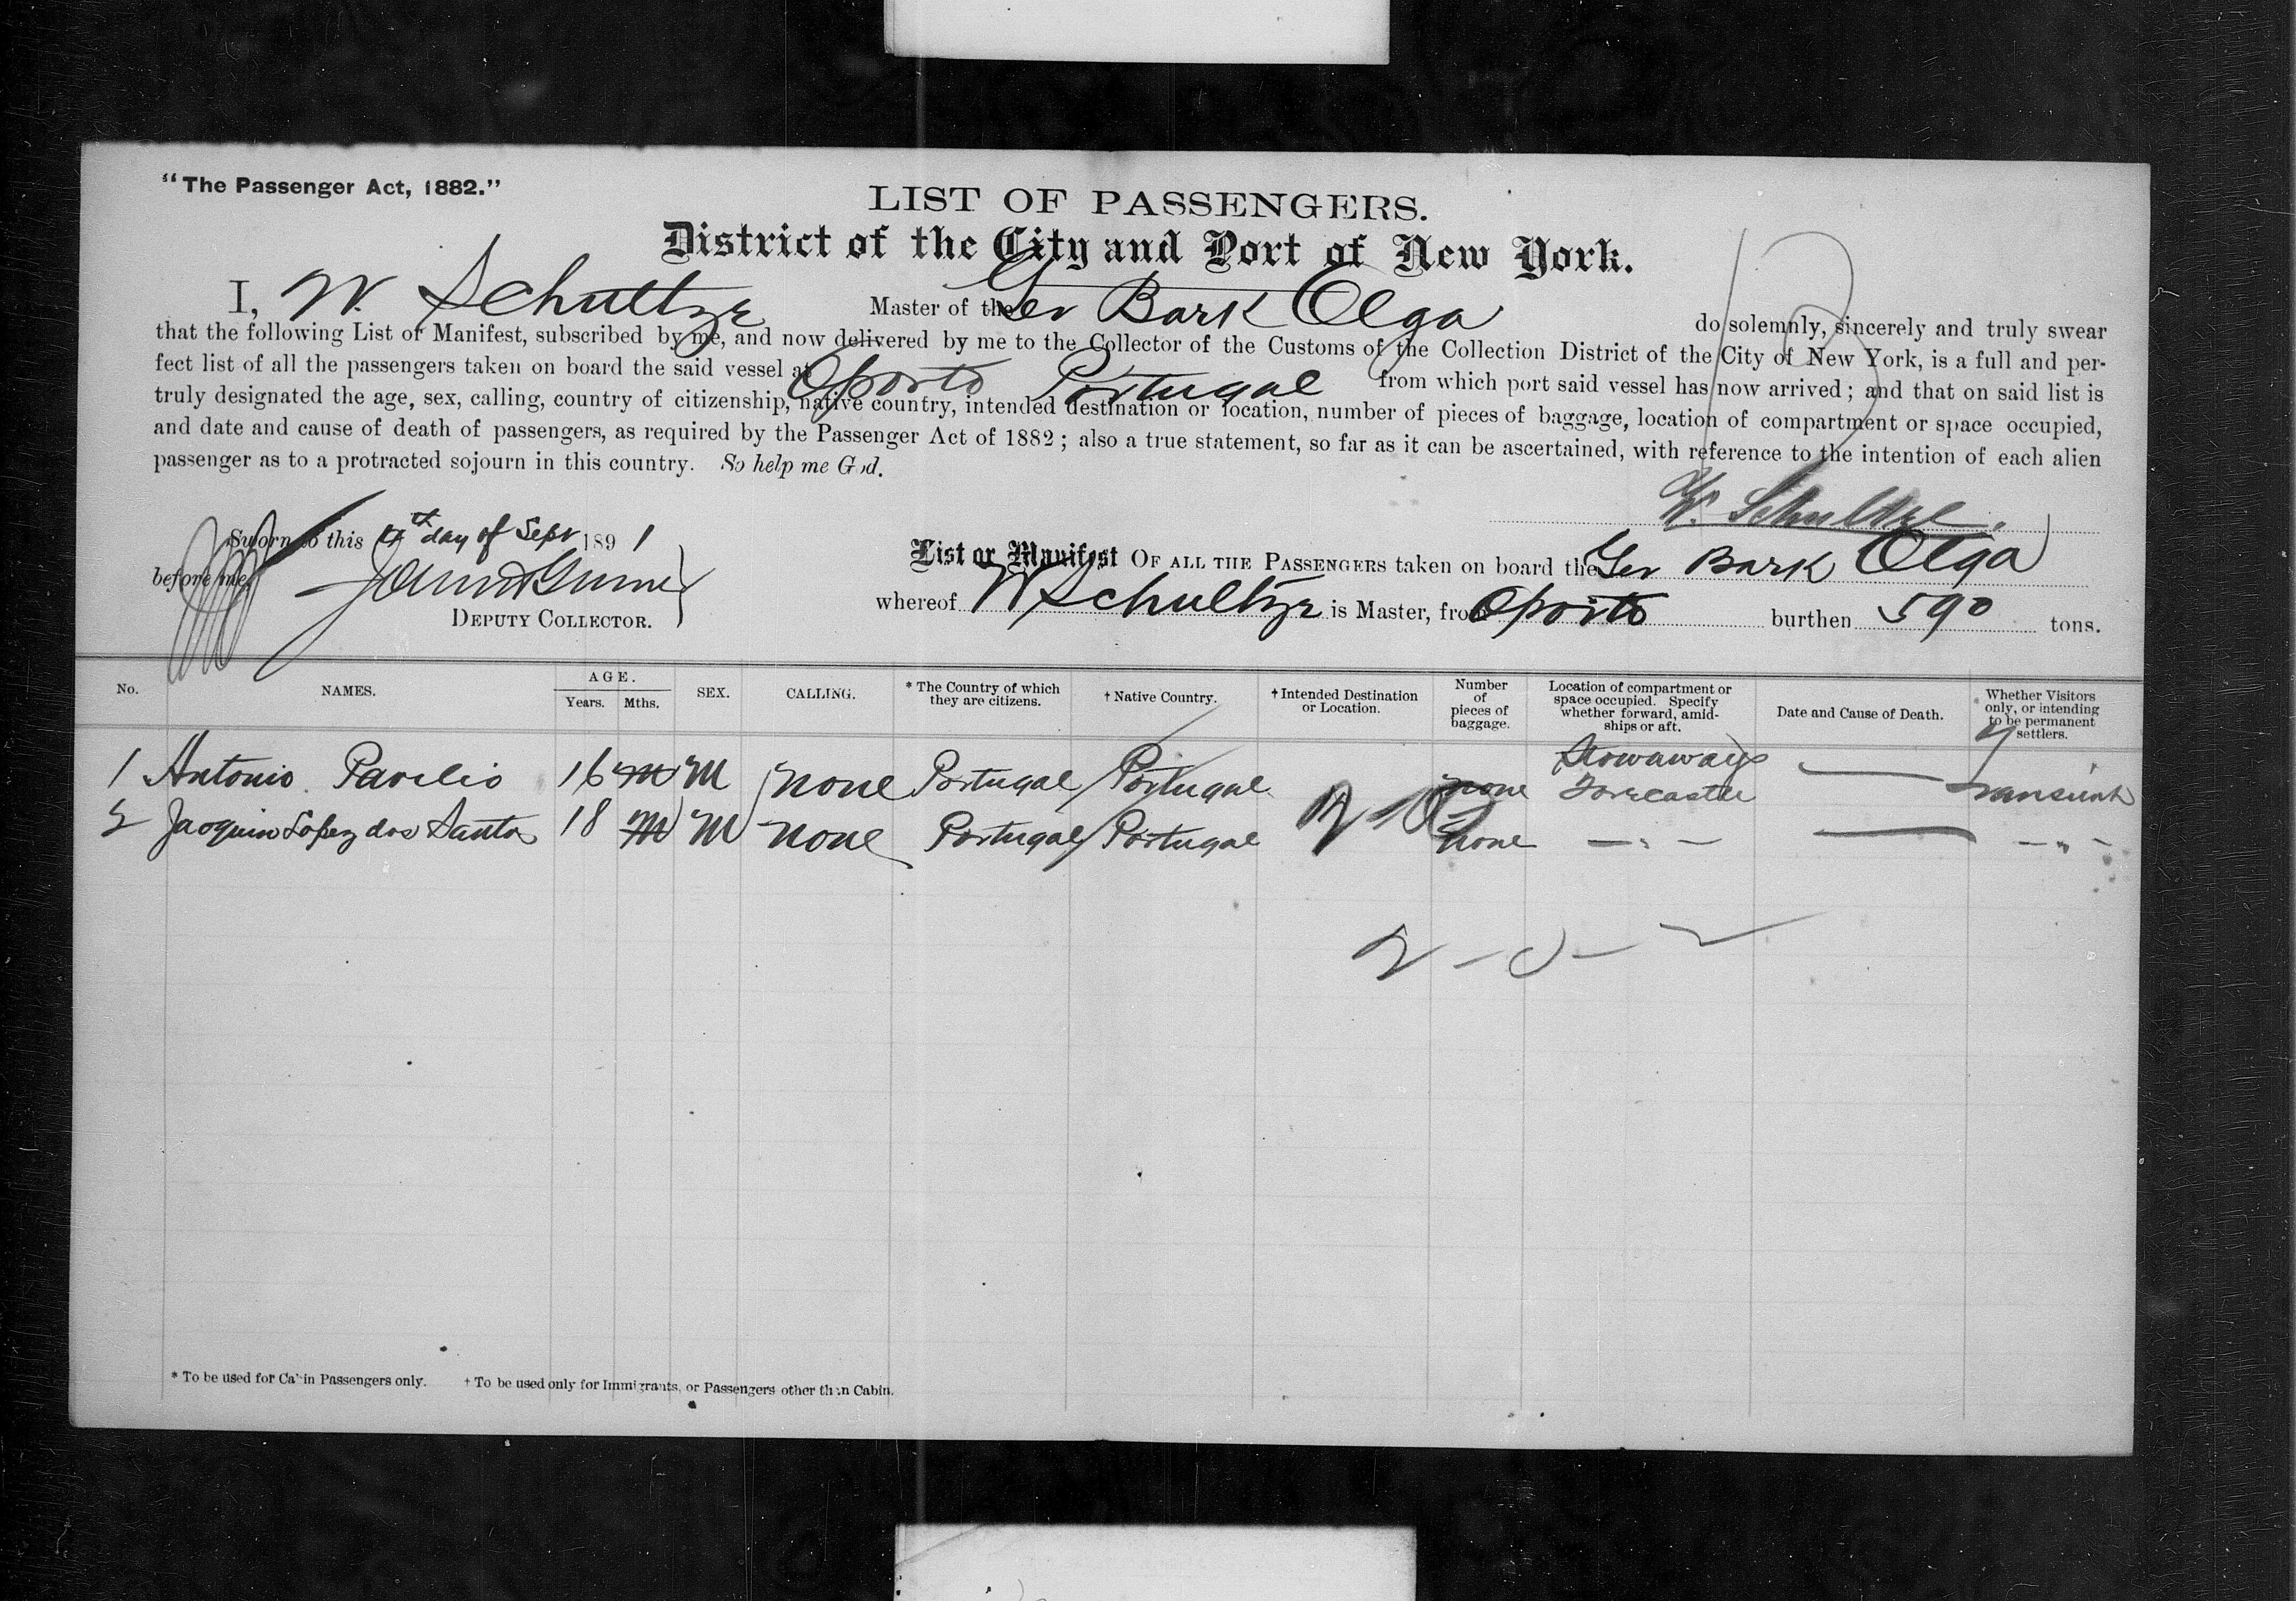 “The Passenger Act, 1882.”
LIST OF PASSENGERS.
District of the City and Port of New York.
I, W. Schultze Master of the Ger Bark Olga do solemnly, sincerely and truly swear
that the following List or Manifest, subscribed by me, and now delivered by me to the Collector of the Customs of the Collection District of the City of New York, is a full and per-
fect list of all the passengers taken on board the said vessel at Oporto Portugal from which port said vessel has now arrived; and that on said list is
truly designated the age, sex, calling, country of citizenship, native country, intended destination or location, number of pieces of baggage, location of compartment or space occupied,
and date and cause of death of passengers, as required by the Passenger Act of 1882; also a true statement, so far as it can be ascertained, with reference to the intention of each alien
passenger as to a protracted sojourn in this country. So help me God.
W. Schultze.
Sworn to this day of Sept 1891
before me
DEPUTY COLLECTOR.
List or Manifest OF ALL THE PASSENGERS taken on board the Ger Bark Olga
whereof W Schultze is Master, from Oporto burthen 590 tons.
No. NAMES. AGE. Years. Mths. SEX. CALLING. * The Country of which they are citizens. † Native Country. † Intended Destination or Location. Number of pieces of baggage. Location of compartment or space occupied. Specify whether forward, amid-ships or aft. Date and Cause of Death. Whether Visitors only, or intending to be permanent settlers.
Stowaways
1 Antonio Parelio 16 M M none Portugal Portugal none Forecastle — Transient
2 Jaoquin Lopez dos Santos 18 M M none Portugal Portugal N Y none — " — — — " —
2 - 0 - 2
* To be used for Cabin Passengers only. † To be used only for Immigrants, or Passengers other than Cabin.